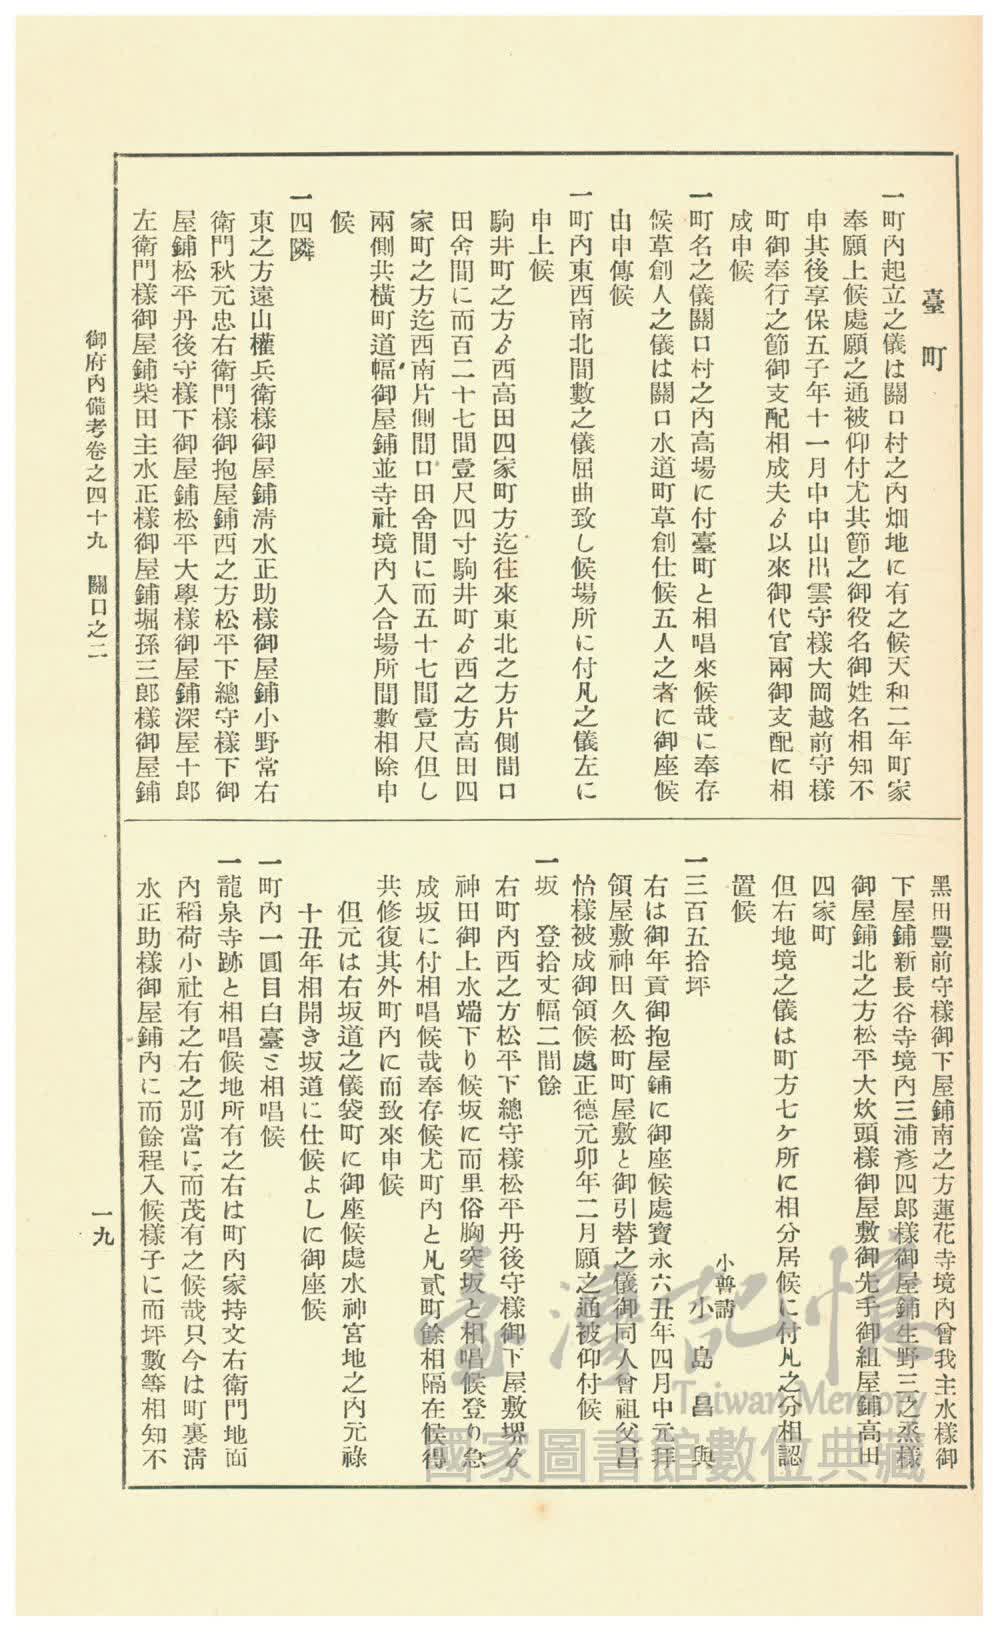 臺町
一町內起立之儀は關口村之內畑地に有之候天和二年町家
奉願上候處願之通被仰付尤其節之御役名御姓名相知不
申其後享保五子年十一月中中山出雲守樣大岡越前守樣
町御奉行之節御支配相成夫ゟ以來御代官兩御支配に相
成申候
一町名之儀關口村之內高場に付臺町と相唱來候哉に奉存
候草創人之儀は關口水道町草創仕候五人之者に御座候
由申傳候
一町內東西南北間數之儀屈曲致し候場所に付凡之儀左に
申上候
駒井町之方ゟ西高田四家町方迄往來東北之方片側間口
田舍間に而百二十七間壹尺四寸駒井町ゟ西之方高田四
家町之方迄西南片側間口田舍間に而五十七間壹尺但し
兩側共橫町道幅御屋鋪並寺社境內入合場所間數相除申
候
一四隣
東之方遠山權兵衛樣御屋鋪淸水正助樣御屋鋪小野常右
衛門秋元忠右衛門樣御抱屋鋪西之方松平下總守樣下御
屋鋪松平丹後守樣下御屋鋪松平大學樣御屋鋪深屋十郞
左衛門樣御屋鋪柴田主水正樣御屋鋪堀孫三郎樣御屋鋪
黑田豐前守樣御下屋鋪南之方蓮花寺境內曾我主水樣御
下屋鋪新長谷寺境內三浦彥四郎樣御屋鋪生野三之丞樣
御屋鋪北之方松平大炊頭樣御屋敷御先手御組屋鋪高田
四家町
但右地境之儀は町方七ケ所に相分居候に付凡之分相認
置候
小普請
一三百五拾坪　小島昌與
右は御年貢御抱屋鋪に御座候處寶永六丑年四月中元拜
領屋敷神田久松町町屋敷と御引替之儀御同人曾祖父昌
怡樣被成御領候處正德元卯年二月願之通被仰付候
一坂　登拾丈幅二間餘
右町內西之方松平下總守樣松平丹後守樣御下屋敷堺ゟ
神田御上水端下り候坂に而里俗胸突坂と相唱候登り急
成坂に付相唱候哉奉存候尤町內と凡貳町餘相隔在候得
共修復其外町內に而致來申候
但元は右坂道之儀袋町に御座候處水神宮地之內元祿
十丑年相開き坂道に仕候よしに御座候
一町內一圓目白臺と相唱候
一龍泉寺跡と相唱候地所有之右は町內家持文右衛門地面
內稻荷小社有之右之別當に而茂有之候哉只今は町裏淸
水正助樣御屋鋪內に而餘程入候樣子に而坪數等相知不
御府內備考卷之四十九　關口之二
一九
臺灣記憶
Taiwan Memory
國家圖書館數位典藏